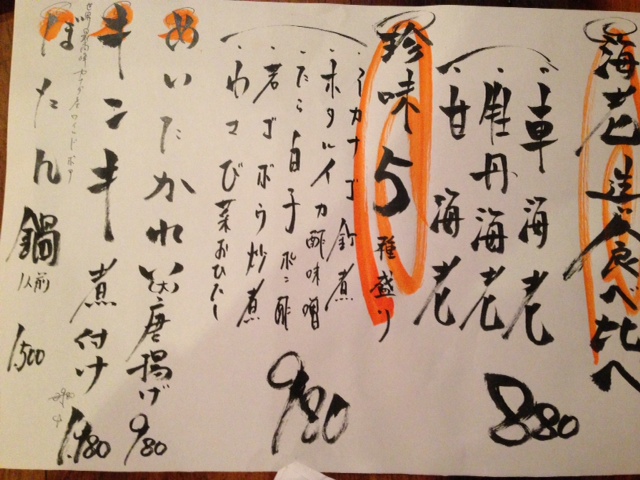 海老 造り食べ比べ
・車海老
・牡丹海老
・甘海老
880
珍味5種盛り
・イカナゴ釘煮
・ホタルイカ酢味噌
・たら白子ポン酢
・若ゴボウ炒煮
・わさび菜おひたし
980
めいたかれい唐揚げ 980
キンキ 煮付け 1,980
ぼたん鍋 1人前 1,500